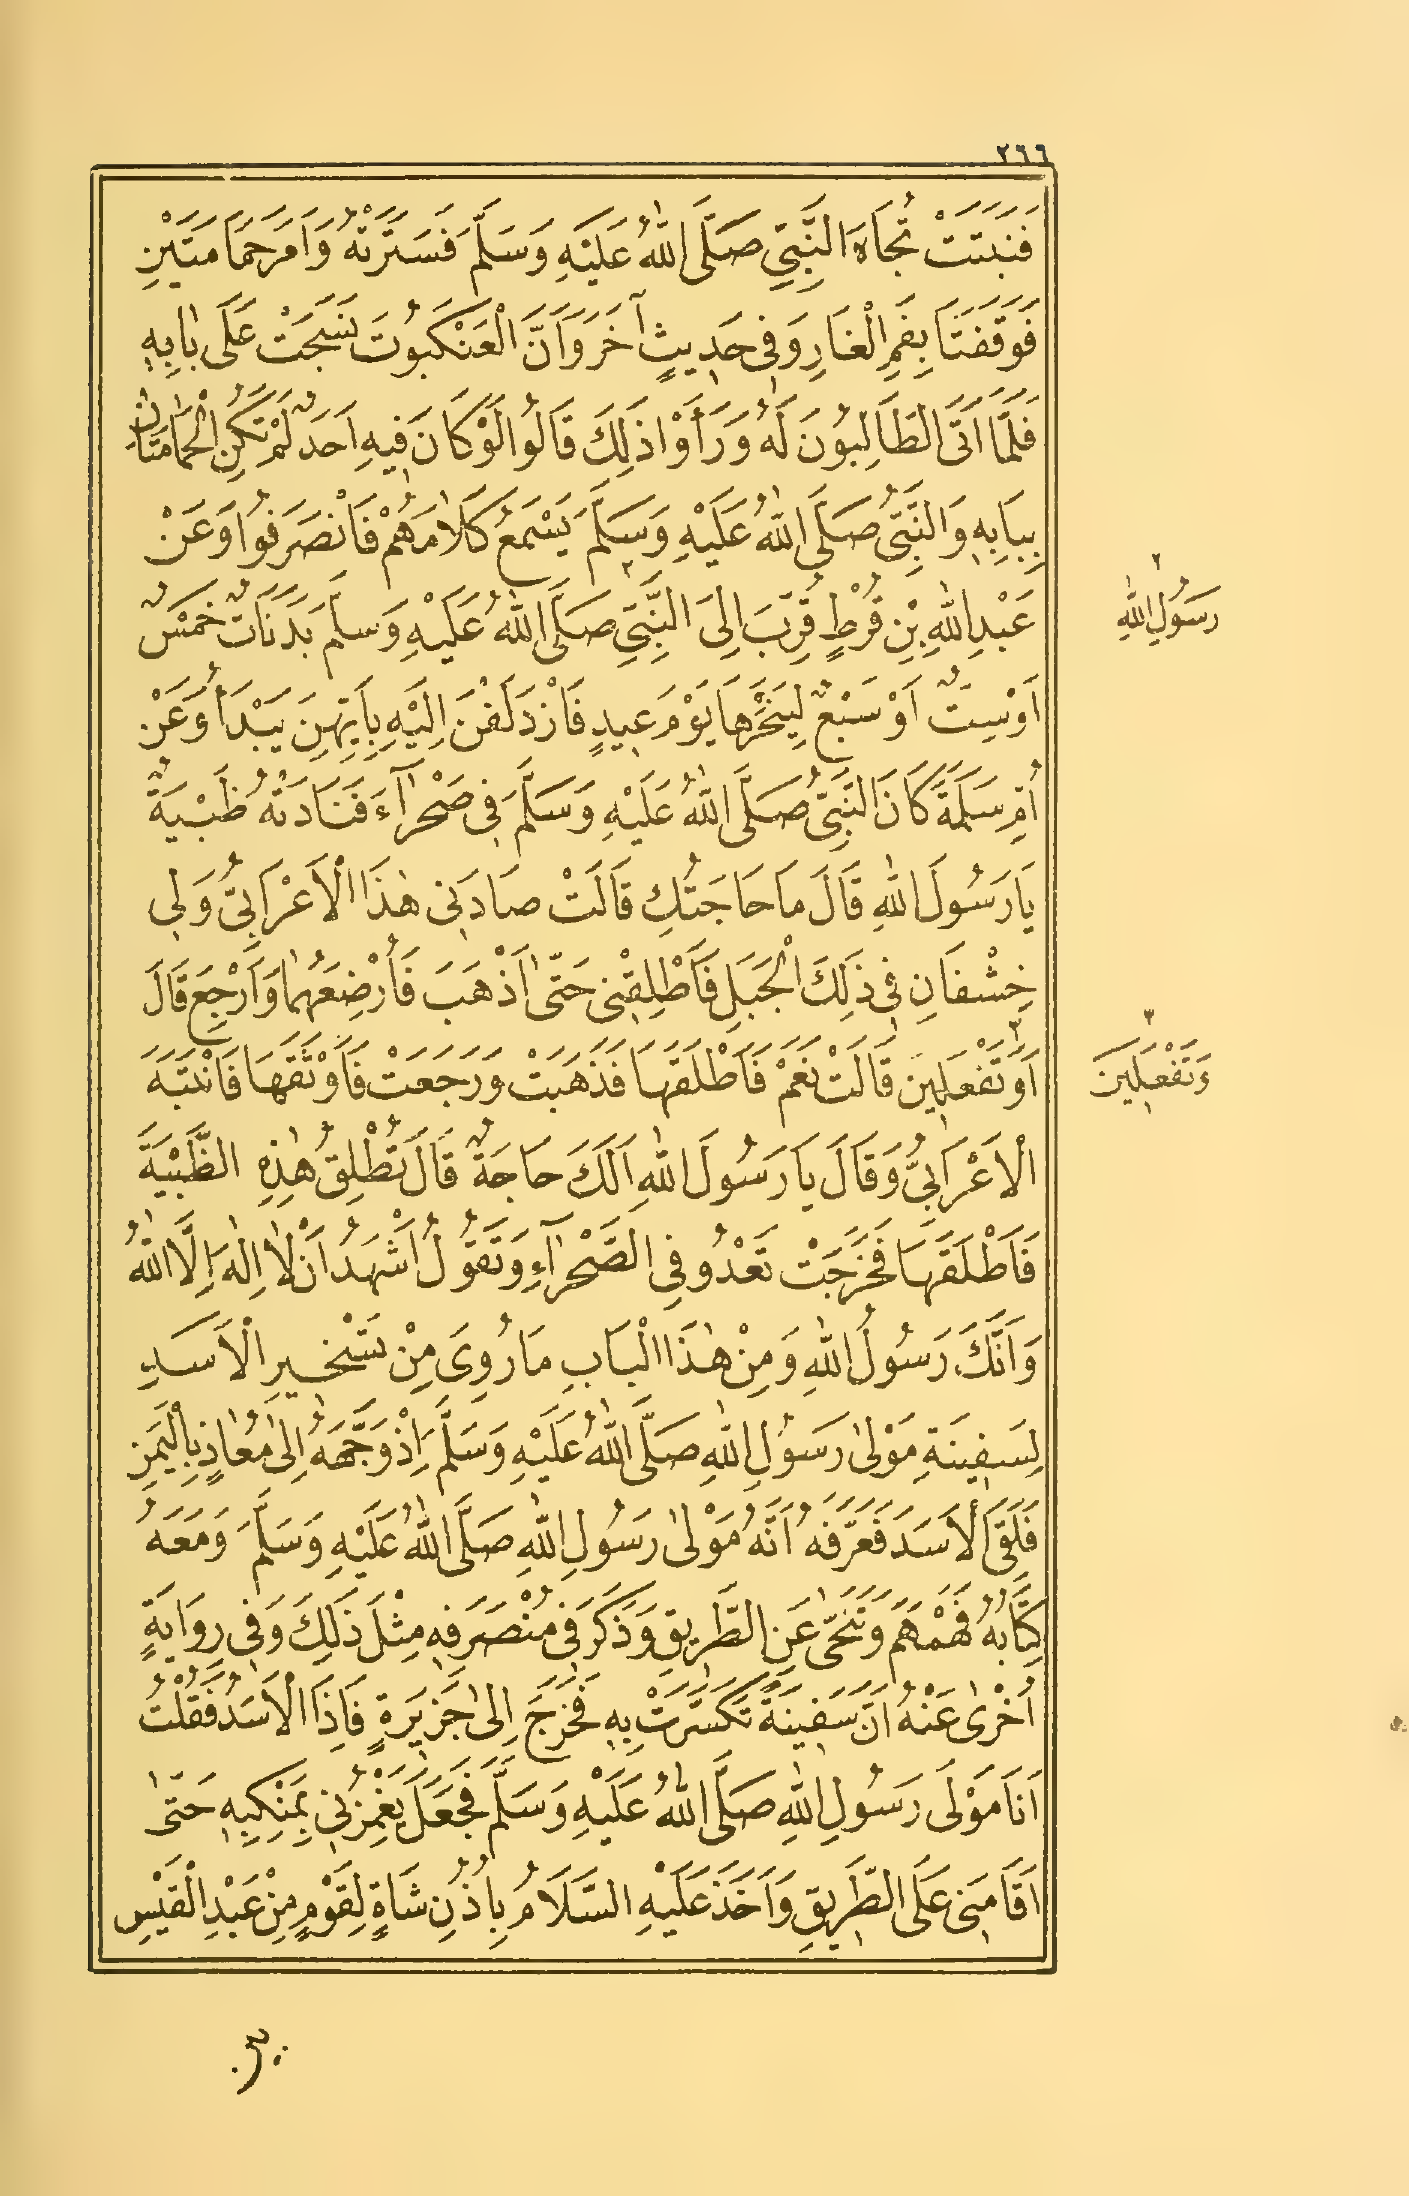 ٢٦٦
فَنَبَتَتْ تُجَاهَ النَّبِيِّ صَلَّى اللّٰهُ عَلَيْهِ وَسَلَّمَ فَسَتَرَتْهُ وَاَمَرَ حَمَامَتَيْنِ
فَوَقَفَتَا بِفَمِ الْغَارِ وَفِي حَدِيثٍ آخَرَ وَاَنَّ الْعَنْكَبُوتَ نَسَجَتْ عَلَى بَابِهِ
فَلَمَّا اَتَى الطَّالِبُونَ لَهُ وَرَأَوْا ذٰلِكَ قَالُوا لَوْ كَانَ فِيهِ اَحَدٌ لَمْ تَكُنِ الْحَمَامَتَانِ
بِبَابِهِ وَالنَّبِيُّ صَلَّى اللّٰهُ عَلَيْهِ وَسَلَّمَ يَسْمَعُ كَلَامَهُمْ فَانْصَرَفُوا وَعَنْ
عَبْدِ اللّٰهِ بْنِ قُرْطٍ قُرِّبَ اِلَى النَّبِيِّ ٢ صَلَّى اللّٰهُ عَلَيْهِ وَسَلَّمَ بَدَنَاتٌ خَمْسٌ
٢
رَسُولِ اللّٰهِ
اَوْ سِتٌّ اَوْ سَبْعٌ لِيَنْحَرَهَا يَوْمَ عِيدٍ فَازْدَلَفْنَ اِلَيْهِ بِاَيِّهِنَّ يَبْدَأُ وَعَنْ
اُمِّ سَلَمَةَ كَانَ النَّبِيُّ صَلَّى اللّٰهُ عَلَيْهِ وَسَلَّمَ فِي صَحْرَآءَ فَنَادَتْهُ ظَبْيَةٌ
يَا رَسُولَ اللّٰهِ قَالَ مَا حَاجَتُكِ قَالَتْ صَادَنِي هٰذَا الْاَعْرَابِيُّ وَلِي
خِشْفَانِ فِي ذٰلِكَ الْجَبَلِ فَاَطْلِقْنِي حَتّٰى اَذْهَبَ فَاُرْضِعَهُمَا وَاَرْجِعَ قَالَ
اَوَ ٣ تَفْعَلِينَ قَالَتْ نَعَمْ فَاَطْلَقَهَا فَذَهَبَتْ وَرَجَعَتْ فَاَوْثَقَهَا فَانْتَبَهَ
٣
وَتَفْعَلِينَ
الْاَعْرَابِيُّ وَقَالَ يَا رَسُولَ اللّٰهِ اَلَكَ حَاجَةٌ قَالَ تُطْلِقُ هٰذِهِ الظَّبْيَةَ
فَاَطْلَقَهَا فَخَرَجَتْ تَعْدُو فِي الصَّحْرَآءِ وَتَقُولُ اَشْهَدُ اَنْ لَا اِلٰهَ اِلَّا اللّٰهُ
وَاَنَّكَ رَسُولُ اللّٰهِ وَمِنْ هٰذَا الْبَابِ مَا رُوِيَ مِنْ تَسْخِيرِ الْاَسَدِ
لِسَفِينَةِ مَوْلٰى رَسُولِ اللّٰهِ صَلَّى اللّٰهُ عَلَيْهِ وَسَلَّمَ اِذْ وَجَّهَهُ اِلٰى مُعَاذٍ بِالْيَمَنِ
فَلَقِيَ الْاَسَدَ فَعَرَّفَهُ اَنَّهُ مَوْلٰى رَسُولِ اللّٰهِ صَلَّى اللّٰهُ عَلَيْهِ وَسَلَّمَ وَمَعَهُ
كِتَابُهُ فَهَمْهَمَ وَتَنَحّٰى عَنِ الطَّرِيقِ وَذَكَرَ فِي مُنْصَرَفِهِ مِثْلَ ذٰلِكَ وَفِي رِوَايَةٍ
اُخْرٰى عَنْهُ اَنَّ سَفِينَةً تَكَسَّرَتْ بِهِ فَخَرَجَ اِلٰى جَزِيرَةٍ فَاِذَا الْاَسَدُ فَقُلْتُ
اَنَا مَوْلَى رَسُولِ اللّٰهِ صَلَّى اللّٰهُ عَلَيْهِ وَسَلَّمَ فَجَعَلَ يَغْمِزُنِي بِمَنْكِبِهِ حَتّٰى
اَقَامَنِي عَلَى الطَّرِيقِ وَاَخَذَ عَلَيْهِ السَّلَامُ بِاُذُنِ شَاةٍ لِقَوْمٍ مِنْ عَبْدِ الْقَيْسِ